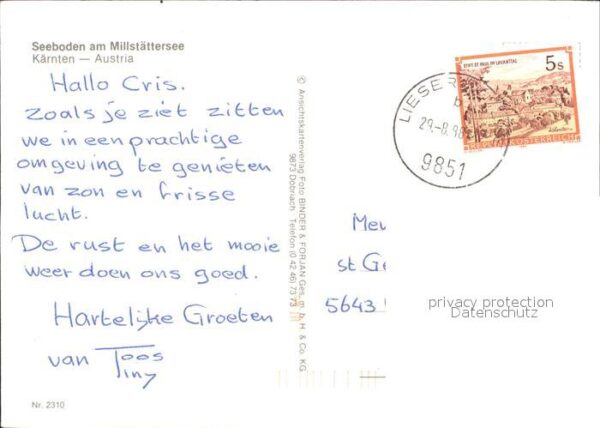 Seeboden am Millstättersee
Kärnten — Austria
Hallo Cris.
zoals je ziet zitten
we in een prachtige
omgeving te genieten
van zon en frisse
lucht.
De rust en het mooie
weer doen ons goed.
Hartelijke Groeten
van Toos
Tiny
Nr. 2310
© Ansichtskartenverlag Foto BINDER & FORJAN Ges. m. b. H. & Co. KG
9873 Döbriach Telefon (0 42 46) 73 73
STIFT ST. PAUL IM LAVANTTAL
5 S
REPUBLIK ÖSTERREICH
LIESER
b
29.-8.98
9851
st Ge
5643
privacy protection
Datenschutz